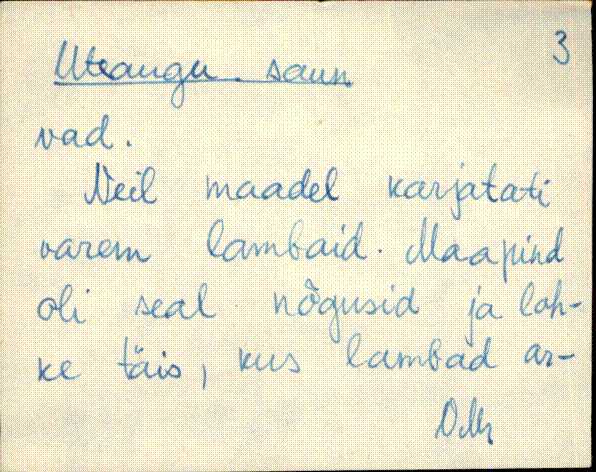 Uteaugu saun
3
vad.
Neil maadel karjatati
varem lambaid. Maapind
oli seal nõgusid ja loh-
ke täis, kus lambad ar-